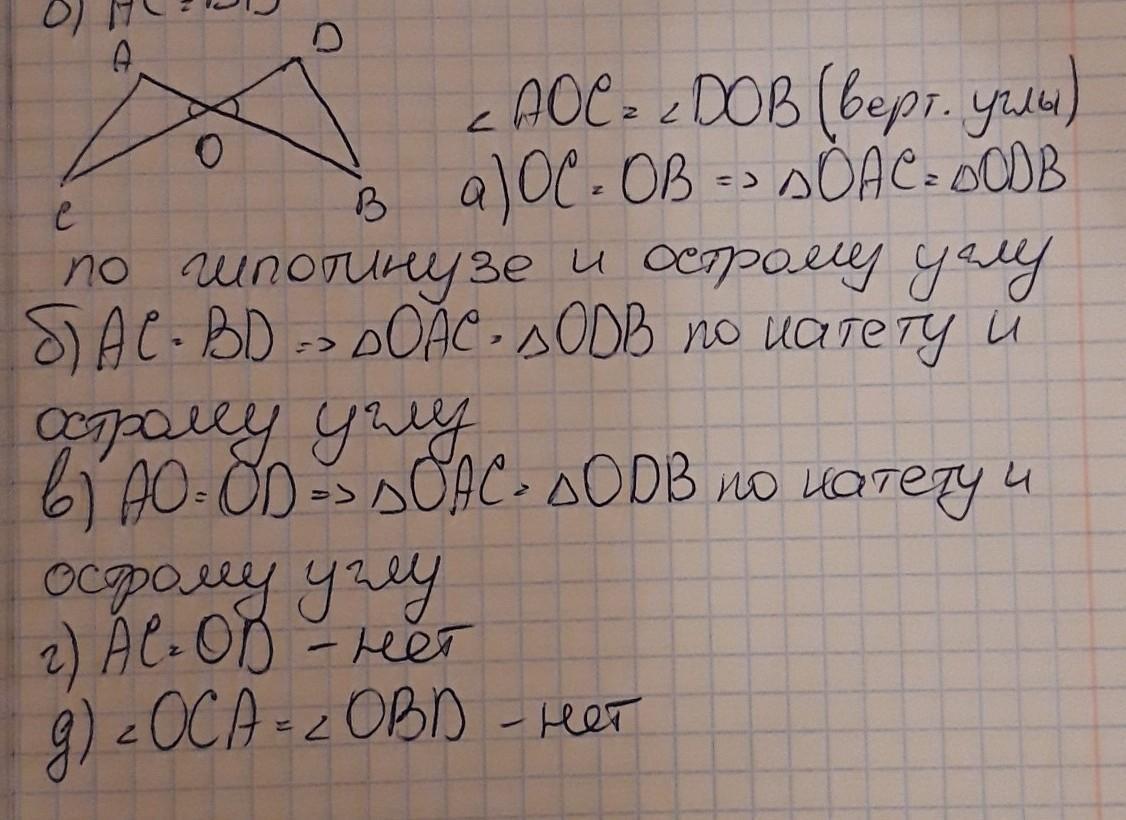 б) AC = BD
A
D
O
C
B
∠AOC = ∠DOB (верт. углы)
а) OC = OB => △OAC = △ODB
по гипотинузе и острому углу
б) AC = BD => △OAC = △ODB по катету и
острому углу
в) AO = OD => △OAC = △ODB по катету и
острому углу
г) AC = OD – нет
д) ∠OCA = ∠OBD – нет